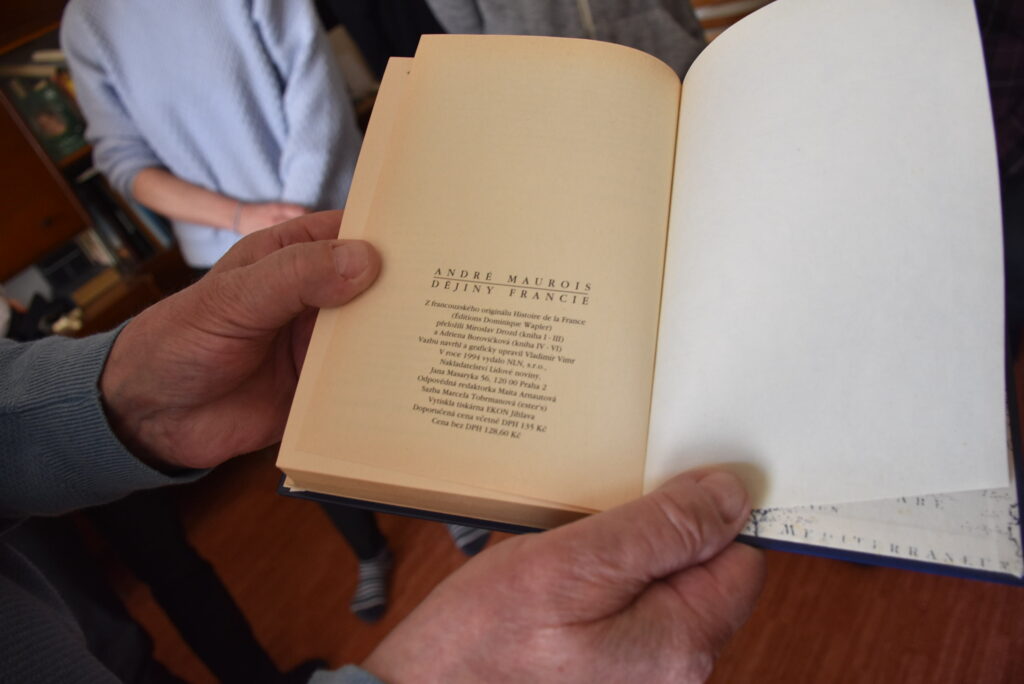 ANDRÉ MAUROIS
DĚJINY FRANCIE
Z francouzského originálu Histoire de la France
(Éditions Dominique Wapler)
přeložili Miroslav Drozd (kniha I - III)
a Adriena Borovičková (kniha IV - VI)
Vazbu navrhl a graficky upravil Vladimír Vimr
V roce 1994 vydalo NLN, s.r.o.,
Nakladatelství Lidové noviny,
Jana Masaryka 56, 120 00 Praha 2
Odpovědná redaktorka Maita Arnautová
Sazba Marcela Tobrmanová (ester's)
Vytiskla tiskárna EKON Jihlava
Doporučená cena včetně DPH 135 Kč
Cena bez DPH 128,60 Kč
ARE
MEDITERRANEUM